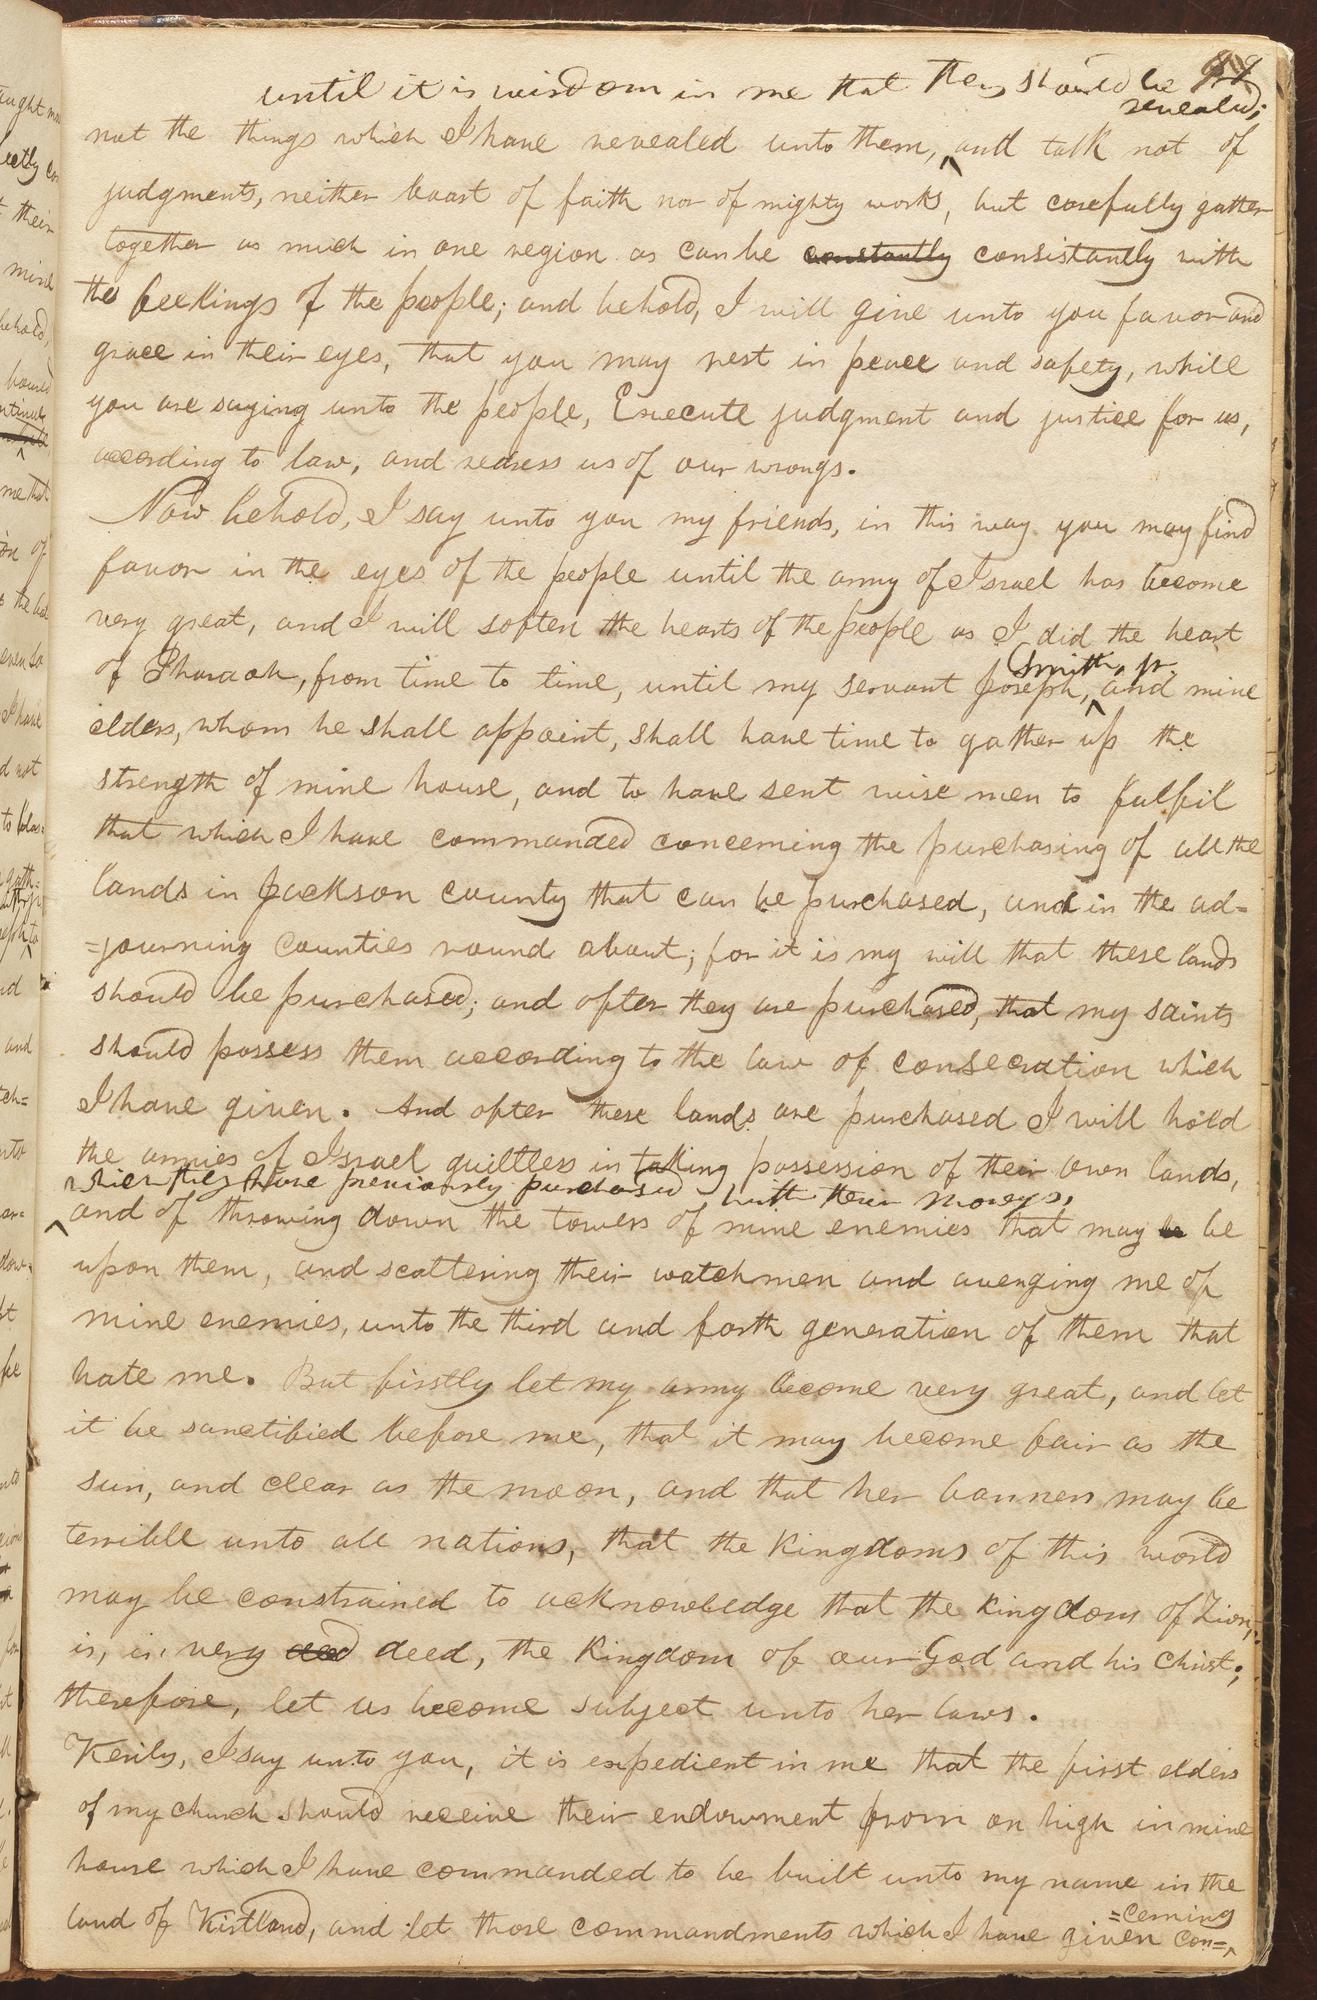 99
until it is wisdom in me that they should be
revealed;
not the things which I have revealed unto them, and talk not of
judgments, neither boast of faith nor of mighty works, but carefully gather
together as much in one region as can be constantly consistantly with
the feellings of the people; and behold, I will give unto you favor and
grace in their eyes, that you may rest in peace and safety, while
you are saying unto the people, Execute judgment and justice for us,
according to law, and redress us of our wrongs.
Now behold, I say unto you my friends, in this way you may find
favor in the eyes of the people until the army of Israel has become
very great, and I will soften the hearts of the people as I did the heart
Smith, jr.
of Pharaoh, from time to time, until my servant Joseph, and mine
elders, whom he shall appoint, shall have time to gather up the
strength of mine house, and to have sent wise men to fulfil
that which I have commanded concerning the purchasing of all the
lands in Jackson county that can be purchased, and in the ad=
=journing counties round about; for it is my will that these lands
should be purchased; and after they are purchased, that my saints
should possess them according to the law of consecration which
I have given. And after these lands are purchased I will hold
the armies of Israel guiltless in taking possession of their own lands,
which they have previously purchased with their moneys,
and of throwing down the towers of mine enemies that may be be
upon them, and scattering their watchmen and avenging me of
mine enemies, unto the third and forth generation of them that
hate me. But firstly let my army become very great, and let
it be sanctified before me, that it may become fair as the
sun, and clear as the moon, and that her banners may be
terrible unto all nations, that the kingdoms of this world
may be constrained to acknowledge that the kingdom of Zion,
is, in very deed, the kingdom of our God and his Christ;
therefore, let us become subject unto her laws.
Verily, I say unto you, it is expedient in me that the first elders
of my church should receive their endowment from on high in mine
house which I have commanded to be built unto my name in the
=cerning
land of Kirtland, and let those commandments which I have given con=